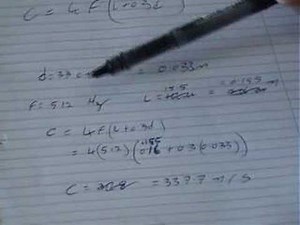 C = 4f(L+0.3d)
d=33 c = 0.033m
f=512 Hz L = 15.5 = 0.155 m
C = 4f(L+0.3d)
= 4(512)(0.155 + 0.3(0.033))
C = = 337.7 m/s